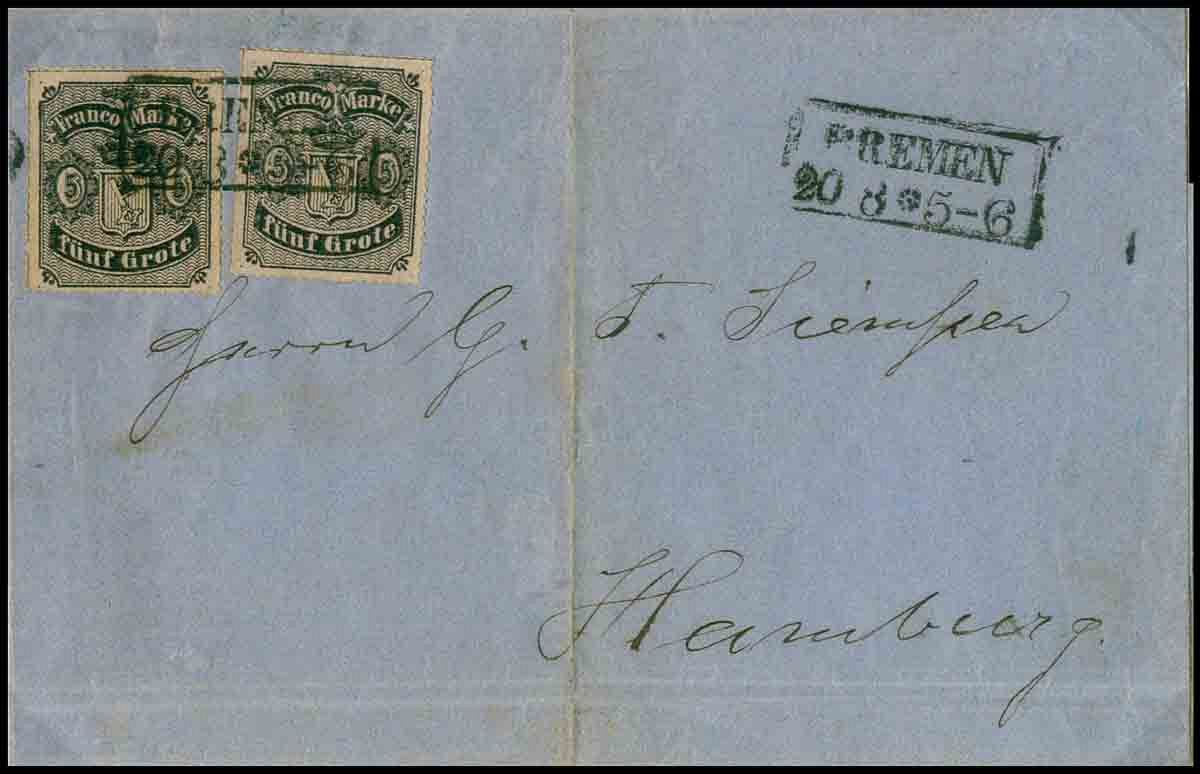 Franco Marke
5 5
fünf Grote
Franco Marke
5 5
fünf Grote
BREMEN
20 8 * 5-6
Herrn G. F. Siemssen
Hamburg.